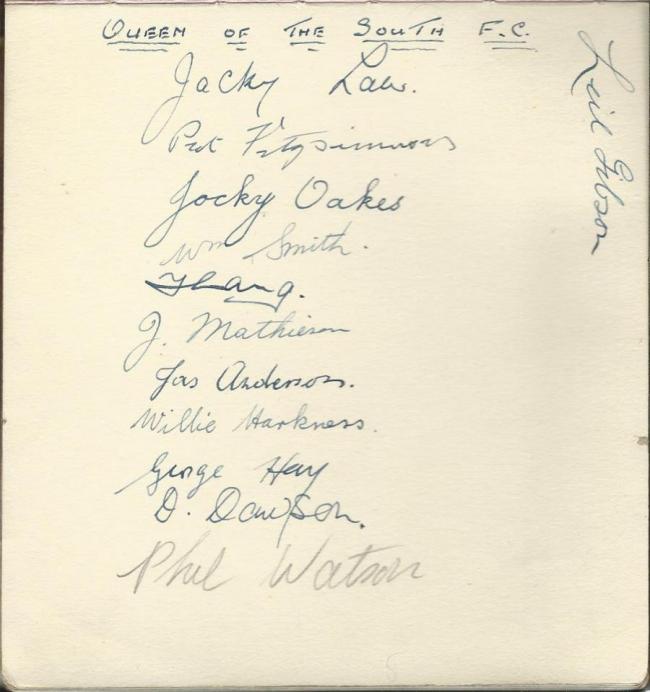 QUEEN OF THE SOUTH F.C.
Jacky Law.
Pat Fitzsimmons
Jocky Oakes
Wm Smith.
J Lang.
J. Mathieson
Jas Anderson.
Willie Harkness.
George Hay
D. Dawson.
Phil Watson
Gibson